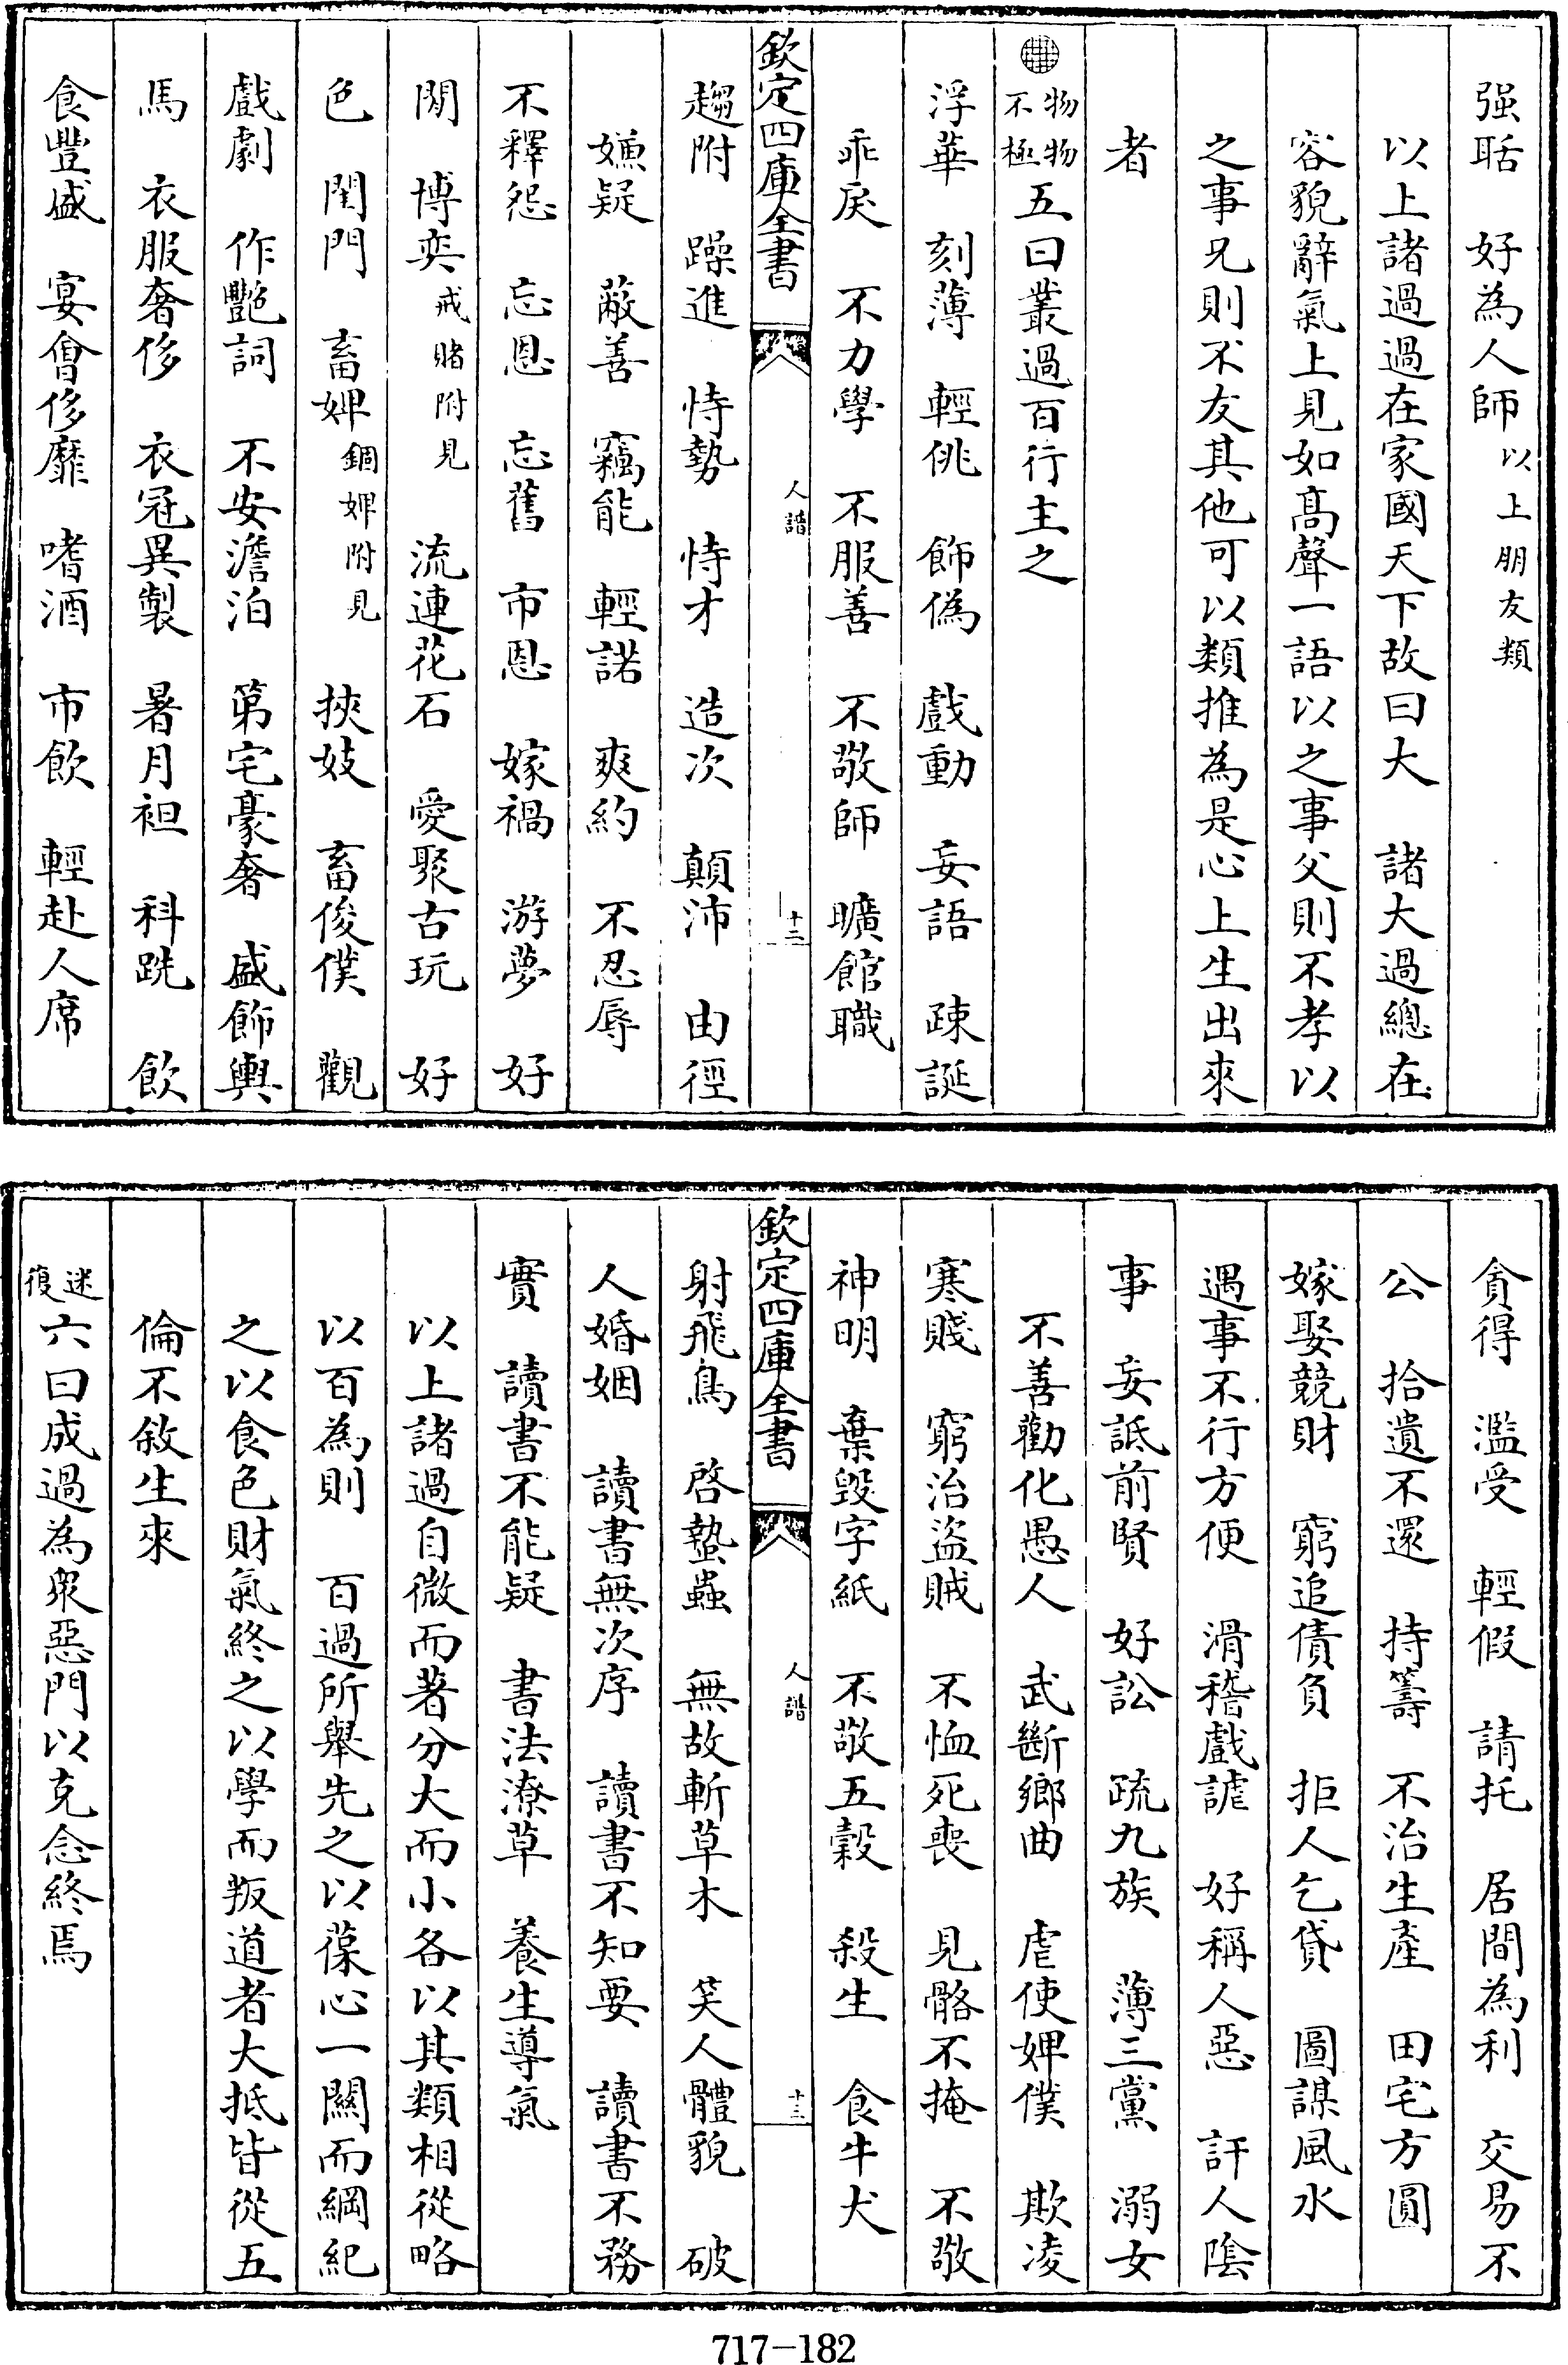 强聒　好為人師以上朋友類
以上諸過過在家國天下故曰大　諸大過總在
容貌辭氣上見如髙聲一語以之事父則不孝以
之事兄則不友其他可以類推為是心上生出來
者
物物不極五曰叢過百行主之
浮華　刻薄　輕佻　飾偽　戲動　妄語　疎誕
乖戾　不力學　不服善　不敬師　曠館職
欽定四庫全書　人譜　十二
趨附　躁進　恃勢　恃才　造次　顛沛　由徑
嫌疑　蔽善　竊能　輕諾　爽約　不忍辱
不釋怨　忘恩　忘舊　市恩　嫁禍　游夢　好
閒　博奕戒賭附見　流連花石　愛聚古玩　好
色　閨門　畜婢錮婢附見　挾妓　畜俊僕　觀
戲劇　作艷詞　不安澹泊　第宅豪奢　盛飾輿
馬　衣服奢侈　衣冠異製　暑月袒　科跣　飲
食豐盛　宴會侈靡　嗜酒　市飲　輕赴人席
貪得　濫受　輕假　請托　居間為利　交易不
公　拾遺不還　持籌　不治生產　田宅方圓
嫁娶競財　窮追債負　拒人乞貸　圖謀風水
遇事不行方便　滑稽戲謔　好稱人惡　訐人陰
事　妄詆前賢　好訟　疏九族　薄三黨　溺女
不善勸化愚人　武斷鄉曲　虐使婢僕　欺凌
寒賤　窮治盜賊　不恤死喪　見骼不掩　不敬
神明　棄毀字紙　不敬五穀　殺生　食牛犬
欽定四庫全書　人譜　十三
射飛鳥　啓蟄蟲　無故斬草木　笑人體貌　破
人婚姻　讀書無次序　讀書不知要　讀書不務
實　讀書不能疑　書法潦草　養生導氣
以上諸過自微而著分大而小各以其類相從略
以百為則　百過所舉先之以葆心一關而綱紀
之以食色財氣終之以學而叛道者大抵皆從五
倫不敘生來
迷復六曰成過為衆惡門以克念終焉
717-182